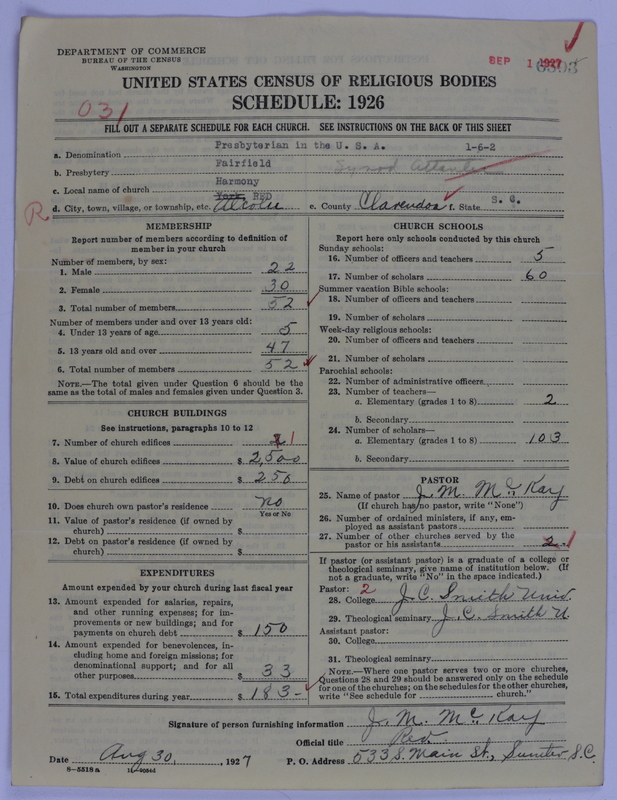 DEPARTMENT OF COMMERCE
BUREAU OF THE CENSUS
WASHINGTON
SEP 1 1927
UNITED STATES CENSUS OF RELIGIOUS BODIES
SCHEDULE: 1926
031
FILL OUT A SEPARATE SCHEDULE FOR EACH CHURCH. SEE INSTRUCTIONS ON THE BACK OF THIS SHEET
a. Denomination Presbyterian in the U. S. A. 1-6-2
b. Presbytery Fairfield Synod Atlantic
c. Local name of church Harmony
R d. City, town, village, or township, etc. York, RED Alcolu e. County Clarendon f. State S. C.
MEMBERSHIP
Report number of members according to definition of
member in your church
Number of members, by sex:
1. Male 22
2. Female 30
3. Total number of members 52
Number of members under and over 13 years old:
4. Under 13 years of age 5
5. 13 years old and over 47
6. Total number of members 52
NOTE.—The total given under Question 6 should be
same as the total of males and females given under Question 3.
CHURCH BUILDINGS
See instructions, paragraphs 10 to 12
7. Number of church edifices 1
8. Value of church edifices $ 2,500
9. Debt on church edifices $ 250
10. Does church own pastor's residence no
Yes or No
11. Value of pastor's residence (if owned by
church) $
12. Debt on pastor's residence (if owned by
church) $
EXPENDITURES
Amount expended by your church during last fiscal year
13. Amount expended for salaries, repairs,
and other running expenses; for im-
provements or new buildings; and for
payments on church debt $ 150
14. Amount expended for benevolences, in-
cluding home and foreign missions; for
denominational support; and for all
other purposes $ 33
15. Total expenditures during year $ 183-
CHURCH SCHOOLS
Report here only schools conducted by this church
Sunday schools:
16. Number of officers and teachers 5
17. Number of scholars 60
Summer vacation Bible schools:
18. Number of officers and teachers
19. Number of scholars
Week-day religious schools:
20. Number of officers and teachers
21. Number of scholars
Parochial schools:
22. Number of administrative officers
23. Number of teachers—
a. Elementary (grades 1 to 8) 2
b. Secondary
24. Number of scholars—
a. Elementary (grades 1 to 8) 103
b. Secondary
PASTOR
25. Name of pastor J. M. McKay
(If church has no pastor, write "None")
26. Number of ordained ministers, if any, em-
ployed as assistant pastors
27. Number of other churches served by the
pastor or his assistants 2 1
If pastor (or assistant pastor) is a graduate of a college or
theological seminary, give name of institution below. (If
not a graduate, write "No" in the space indicated.)
Pastor: 2
28. College J. C. Smith Univ.
29. Theological seminary J. C. Smith U
Assistant pastor:
30. College
31. Theological seminary
NOTE.—Where one pastor serves two or more churches,
Questions 28 and 29 should be answered only on the schedule
for one of the churches; on the schedules for the other churches,
write "See schedule for church."
Signature of person furnishing information J. M. McKay
Official title Rev.
Date Aug 30, 1927 P. O. Address 533 S. Main St., Sumter S.C.
8—5518 a